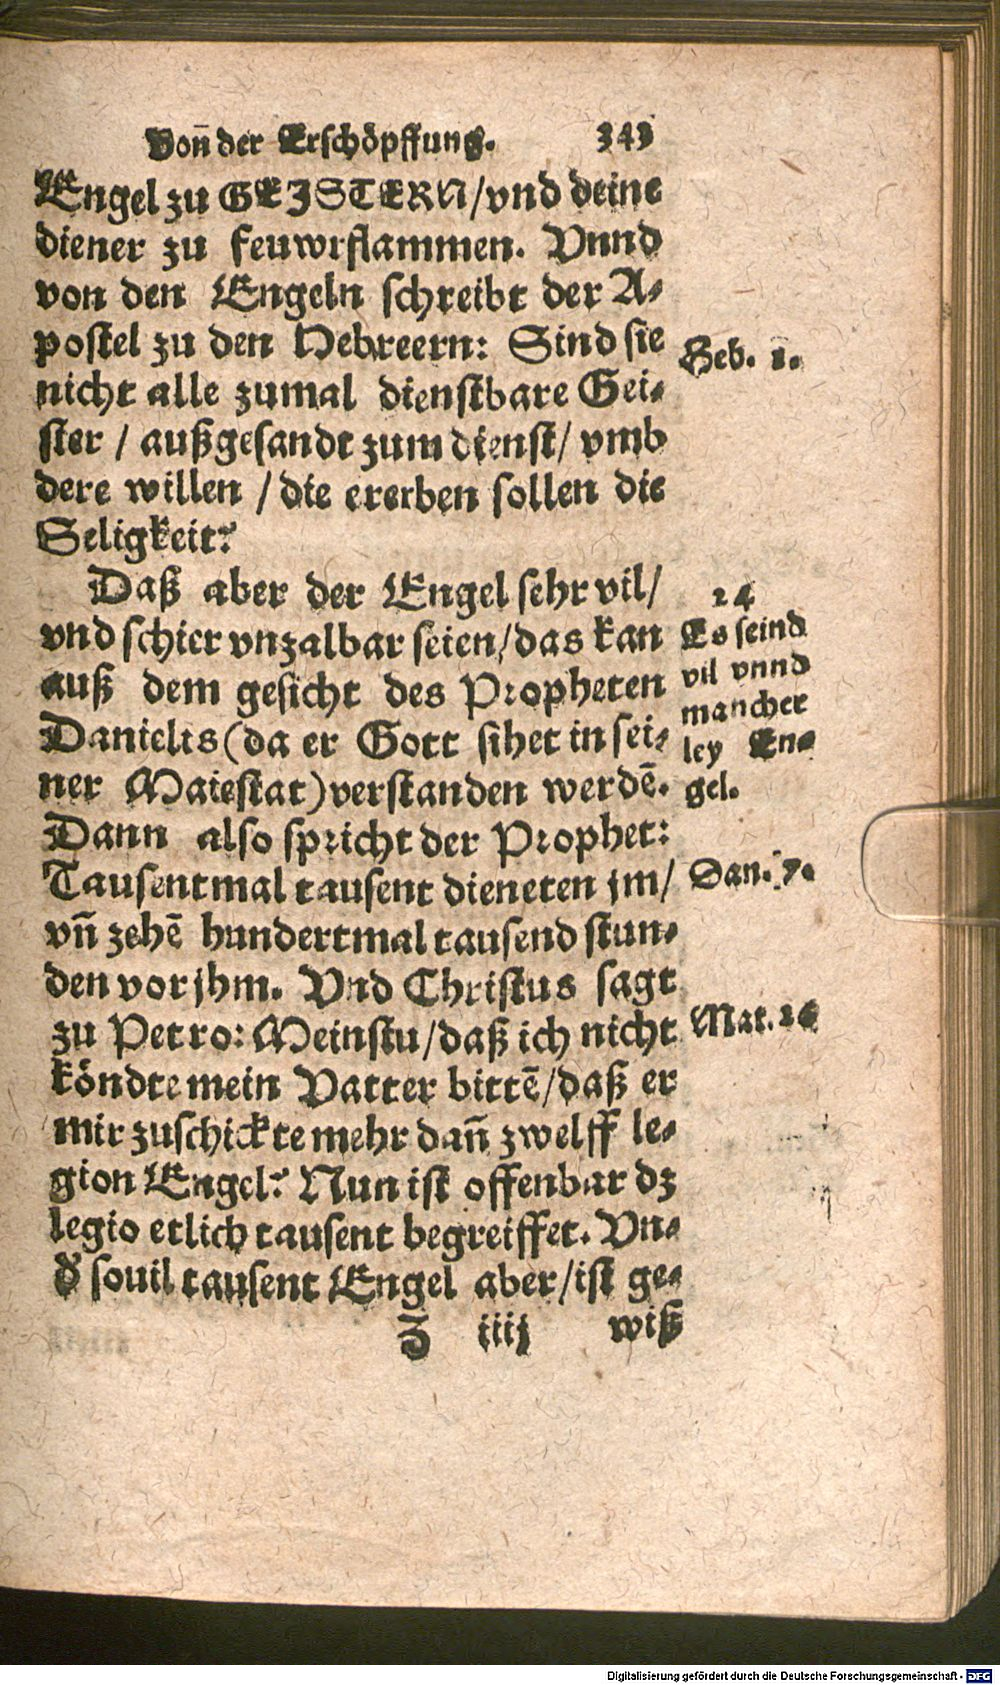 Von̄ der Erschöpffung. 343
Engel zu GEISTERN/vnd deine
diener zu feuwrflammen. Vnnd
von den Engeln schreibt der A-
postel zu den Hebreern: Sind sie
nicht alle zumal dienstbare Gei-
ster / außgesandt zum dienst/ vmb
dere willen / die ererben sollen die
Seligkeit?
Heb. 1.
Daß aber der Engel sehr vil/
vnd schier vnzalbar seien/das kan
auß dem gesicht des Propheten
Danielis (da er Gott sihet in sei-
ner Maiestat) verstanden werdē.
Dann also spricht der Prophet:
Tausentmal tausent dieneten jm/
vn̄ zehē hundertmal tausend stun-
den vor jhm. Vnd Christus sagt
zu Petro: Meinstu/daß ich nicht
köndte mein Vatter bittē/daß er
mir zuschickte mehr dan̄ zwelff le-
gion Engel? Nun ist offenbar dz
legio etlich tausent begreiffet. Vn-
d souil tausent Engel aber/ist ge-
24
Es seind
vil vnnd
mancher
ley En-
gel.
Dan. 7.
Mat. 26
Z iiij wiß
Digitalisierung gefördert durch die Deutsche Forschungsgemeinschaft - DFG